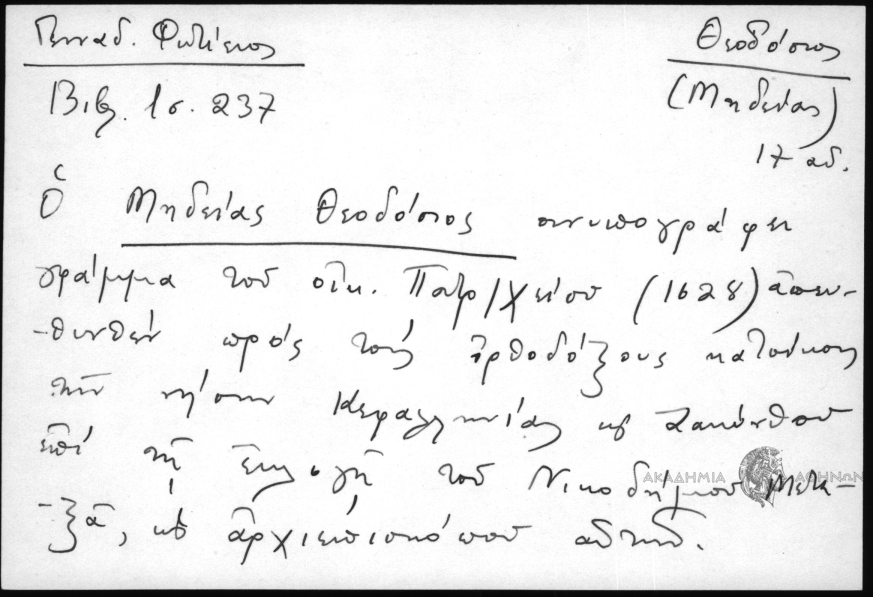 Γενναδ. Φωτίειος
Θεοδόσιος
Βιβ. 1 σ. 237
(Μηδείας)
17 αἰ.
Ὁ Μηδείας Θεοδόσιος συνυπογράφει
γράμμα τοῦ οἰκ. Πατρ/χείου (1628) ἀπευ-
-θυνθέν πρός τούς ὀρθοδόξους κατοίκους
τῶν νήσων Κεφαλληνίας κ Ζακύνθου
ἐπί τῇ ἐκλογῇ τοῦ Νικοδήμου Μετα-
-ξᾶ, κ ἀρχιεπισκόπου αὐτῶν.
ΑΚΑΔΗΜΙΑ ΑΘΗΝΩΝ